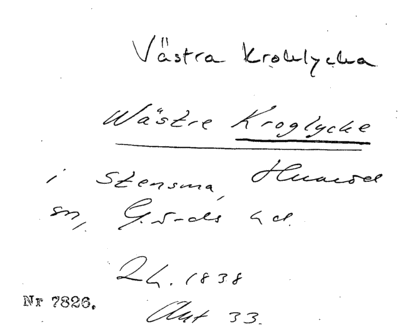 Västra Kroklycka
Wästre Kroglycke
i Stensma, Huaröd
sn, G-ds hd.
Lh. 1838
Nr 7826.
Akt 33.